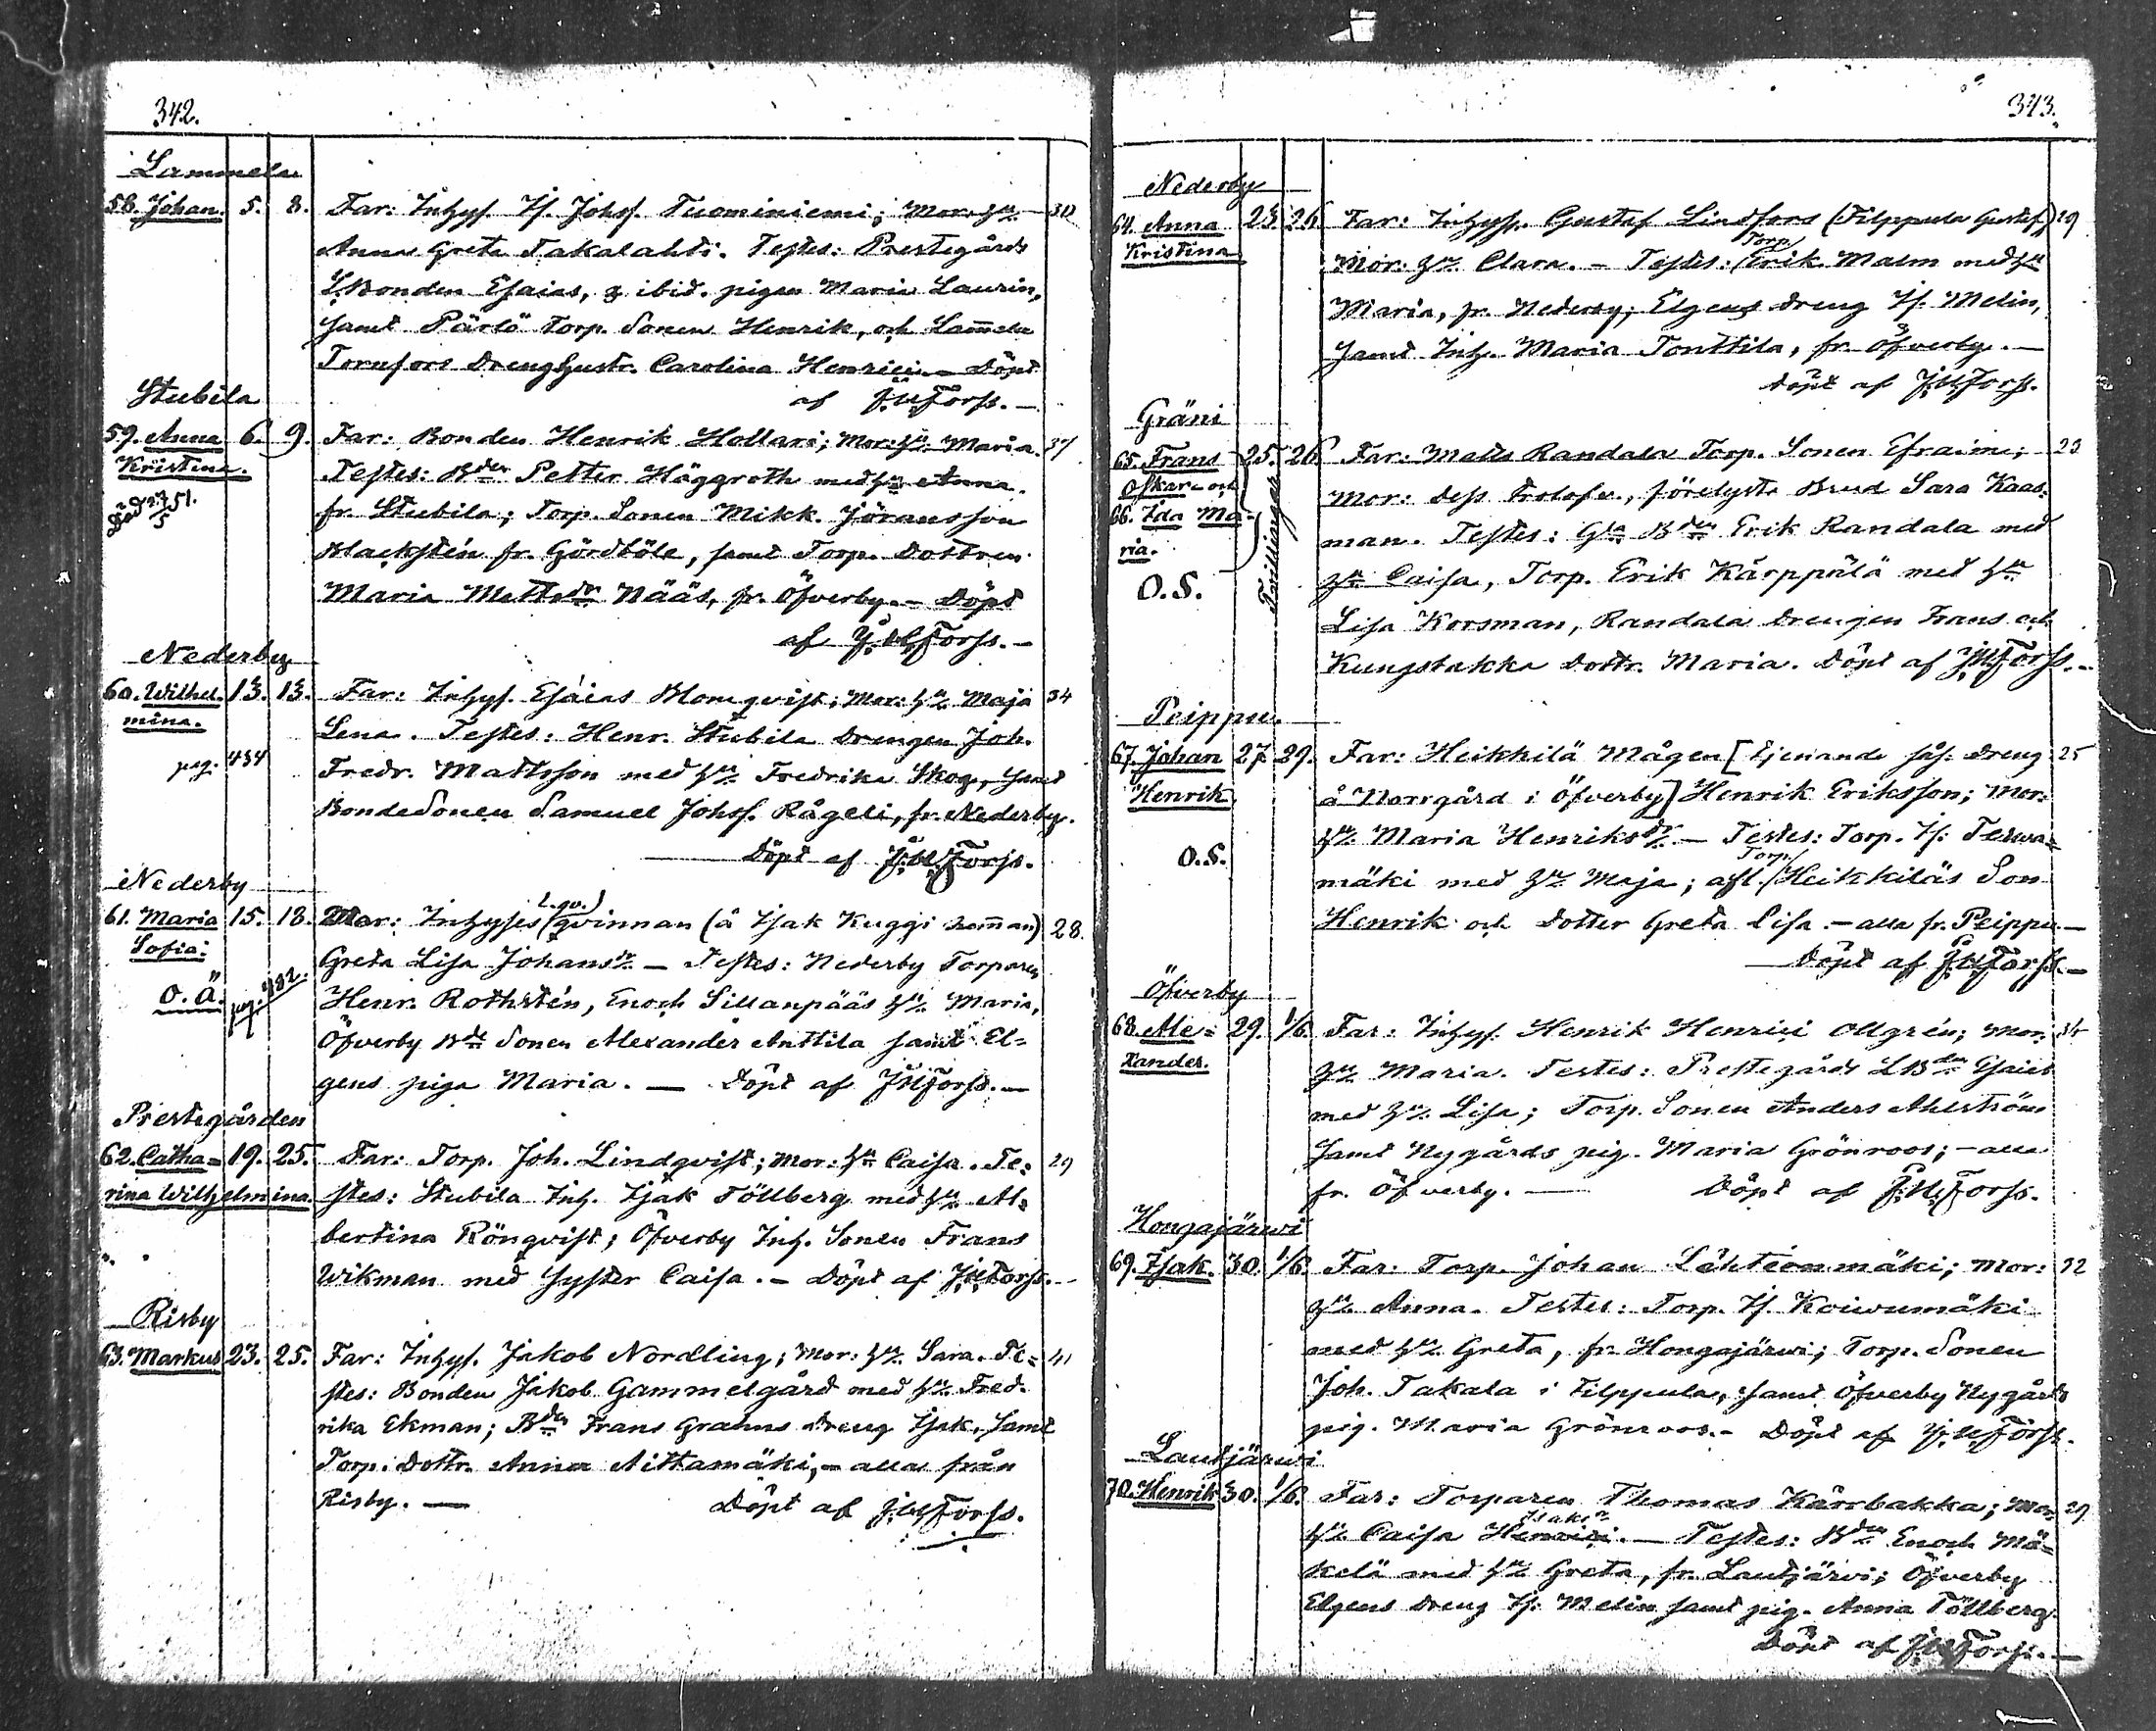 342.
Lammela
58. Johan. 5. 8. Far: Inhys. Is. Johss. Tuominiemi; Mor: hu. 30
Anna Greta Takalahti. Testes: Prestegårds
L.Bonden Esaias, & ibid. pigan Maria Laurin,
samt Pärlö Torp. Sonen Henrik, och Lammela
Tornfors Dreng hustr. Carolina Henrici. — Döpt
af J.W. Forss. —
Stubila
59. Anna 6. 9. Far: Bonden Henrik Hollari; Mor: hu Maria. 37
Kristina. Testes: Bden Petter Häggroth med hu Anna,
Död 27/5 51. fr. Stubila; Torp. Sonen Mikk. Jöransson
Blackstén fr. Gördböle, samt Torp. Dottren
Maria Mattsdr Nääs, fr. Öfverby. — Döpt
af J.W. Forss. —
Nederby
60. Wilhel- 13. 13. Far: Inhys. Esaias Blomqvist; Mor: hu. Maja 34
mina. Lena. Testes: Henr. Stubila Drengen Joh.
pag. 434 Fredr. Mattsson med hu. Fredrika Skog, samt
BondeSonen Samuel Johss. Rågeli, fr. Nederby.
Döpt af J.W. Forss.
Nederby
61. Maria 15. 18. Mor: Inhyses (L.qv.) qvinnan (å Isak Kuggi hemman) 28.
Sofia: Greta Lisa Johansdr. — Testes: Nederby Torparen
O. Ä. pag. 432. Henr. Rothstén, Enoch Sillanpääs hu. Maria,
Öfverby Bde Sonen Alexander Anttila samt El-
gens piga Maria. — Döpt af J.W. Forss. —
Prestegården
62. Catha- 19. 25. Far: Torp. Joh. Lindqvist; Mor: hu Caisa. Te- 29
rina Wilhelmina. stes: Stubila Inh. Isak Töllberg med hu. Al-
bertina Rönqvist; Öfverby Inh. Sonen Frans
Wikman med syster Caisa. — Döpt af J.W. Forss. —
Risby
63. Markus 23. 25. Far: Inhys. Jakob Nordling; Mor: hu. Sara. Te- 41
stes: Bonden Jakob Gammelgård med hu. Fred-
rika Ekman; Bden Frans Grahns dreng Isak, samt
Torp. Dottr. Anna Aittamäki, — alla från
Risby. — Döpt af J.W. Forss.
343.
Nederby
64. Anna 23. 26. Far: Inhys. Gustaf Lindfors (Filppula Gustaf) 29
Kristina Mor: hu. Clara. — Testes: Torp. Erik Malm med hu
Maria, fr. Nederby; Elgens dreng Is. Melin,
samt Inh. Maria Tonttila, fr. Öfverby. —
Döpt af J.W. Forss.
Gräni
65. Frans 25. 26. Far: Matts Randala Torp. Sonen Efraim; 23
Oskar och Mor: dess trolofv., förelyste Brud Sara Kaas-
66. Ida Ma- man. Testes: Gla Bden Erik Randala med
ria. Tvillingar hu Caisa, Torp. Erik Kärppälä med hu
O.S. Lisa Korsman, Randala drengen Frans och
Kungstakka Dottr. Maria. Döpt af J.W. Forss. —
Peippu.
67. Johan 27. 29. Far: Heikkilä Mågen [tjenande sås. dreng 25
Henrik å Norrgård i Öfverby] Henrik Eriksson; Mor:
hu. Maria Henriksdr. — Testes: Torp. Is: Terwa-
O.S. mäki med hu. Maja; afl. Torp. Heikkiläs Son
Henrik och Dotter Greta Lisa. — alla fr. Peippu. —
Döpt af J.W. Forss. —
Öfverby
68. Ale- 29. 1/6. Far: Inhys. Henrik Henrici Ollgrén; Mor: 34
xander. hu. Maria. Testes: Prestegårds LBden Esaias
med hu. Lisa; Torp. Sonen Anders Ahlström
samt Nygårds pig. Maria Grönroos; — alla
fr. Öfverby. — Döpt af J.W. Forss.
Hongajärwi
69. Isak. 30. 1/6. Far: Torp. Johan Lähteenmäki; Mor: 32
hu. Anna. Testes: Torp. Is. Koiwumäki
med hu. Greta, fr. Hongajärwi; Torp. Sonen
Joh. Takala i Filppula, samt Öfverby Nygårds
pig. Maria Grönroos. — Döpt af J.W. Forss.
Lautjärwi
70. Henrik 30. 1/6. Far: Torparen Thomas Kärrbakka; Mor: 29
hu. Caisa Henrici Isaksdr. — Testes: Bden Enoch Mä-
kelä med hu. Greta, fr. Lautjärwi; Öfverby
Elgens dreng Is: Melin samt pig. Anna Töllberg.
Döpt af J.W. Forss. —